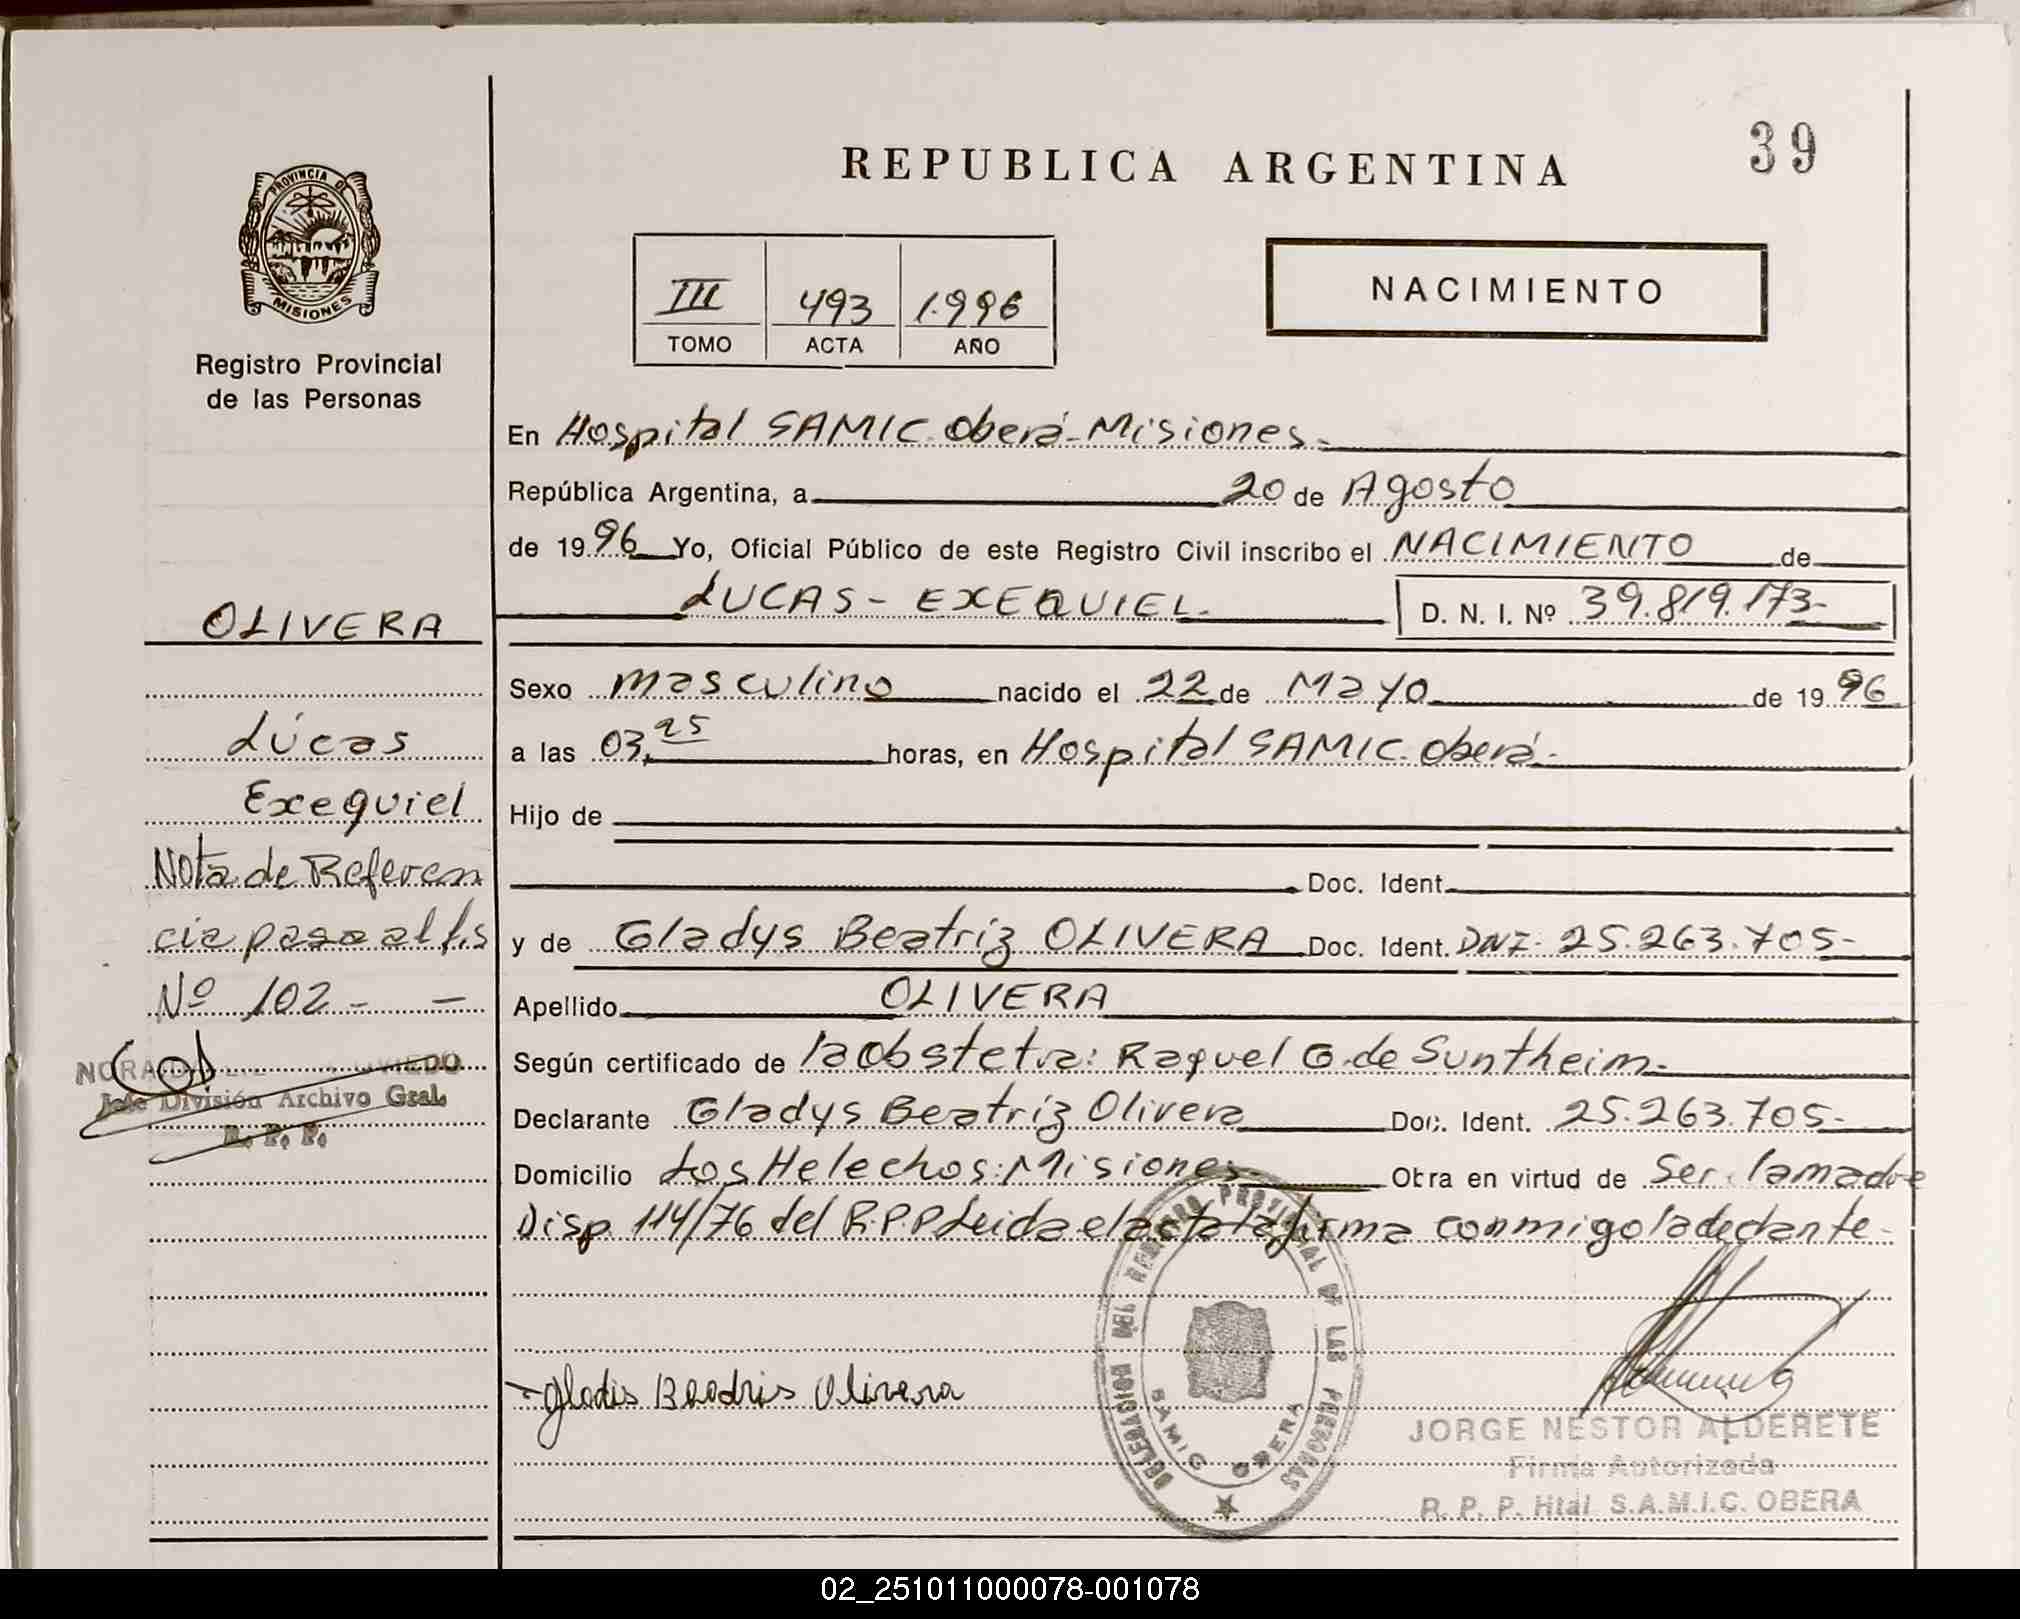 REPUBLICA ARGENTINA
39
PROVINCIA DE
MISIONES
Registro Provincial
de las Personas
III 493 1.996
TOMO ACTA AÑO
NACIMIENTO
En Hospital SAMIC. Oberá-Misiones.
República Argentina, a 20 de Agosto
de 1996 Yo, Oficial Público de este Registro Civil inscribo el NACIMIENTO de
LUCAS - EXEQUIEL. D. N. I. Nº 39.819.173-
OLIVERA
Sexo masculino nacido el 22 de Mayo de 1996
Lúcas
a las 03,25 horas, en Hospital SAMIC. Oberá.
Exequiel
Hijo de
Nota de Referen
Doc. Ident.
cia pasa al fs
y de Gladys Beatriz OLIVERA Doc. Ident. DNI. 25.263.705-
Nº 102 - -
Apellido OLIVERA
Según certificado de la obstetra: Raquel G. de Suntheim.
NORA OVIEDO
Jefe División Archivo Gral.
R. P. P.
Declarante Gladys Beatriz Olivera Doc. Ident. 25.263.705-
Domicilio Los Helechos: Misiones Obra en virtud de Ser la madre
Disp. 114/76 del R.P.P Leida el acta la firma conmigo la declante -
DELEGACION DEL REGISTRO PROVINCIAL DE LAS PERSONAS
SAMIC OBERA
Gladis Beadris Olivera
JORGE NESTOR ALDERETE
Firma Autorizada
R. P. P. Htal. S.A.M.I.C. OBERA
02_251011000078-001078